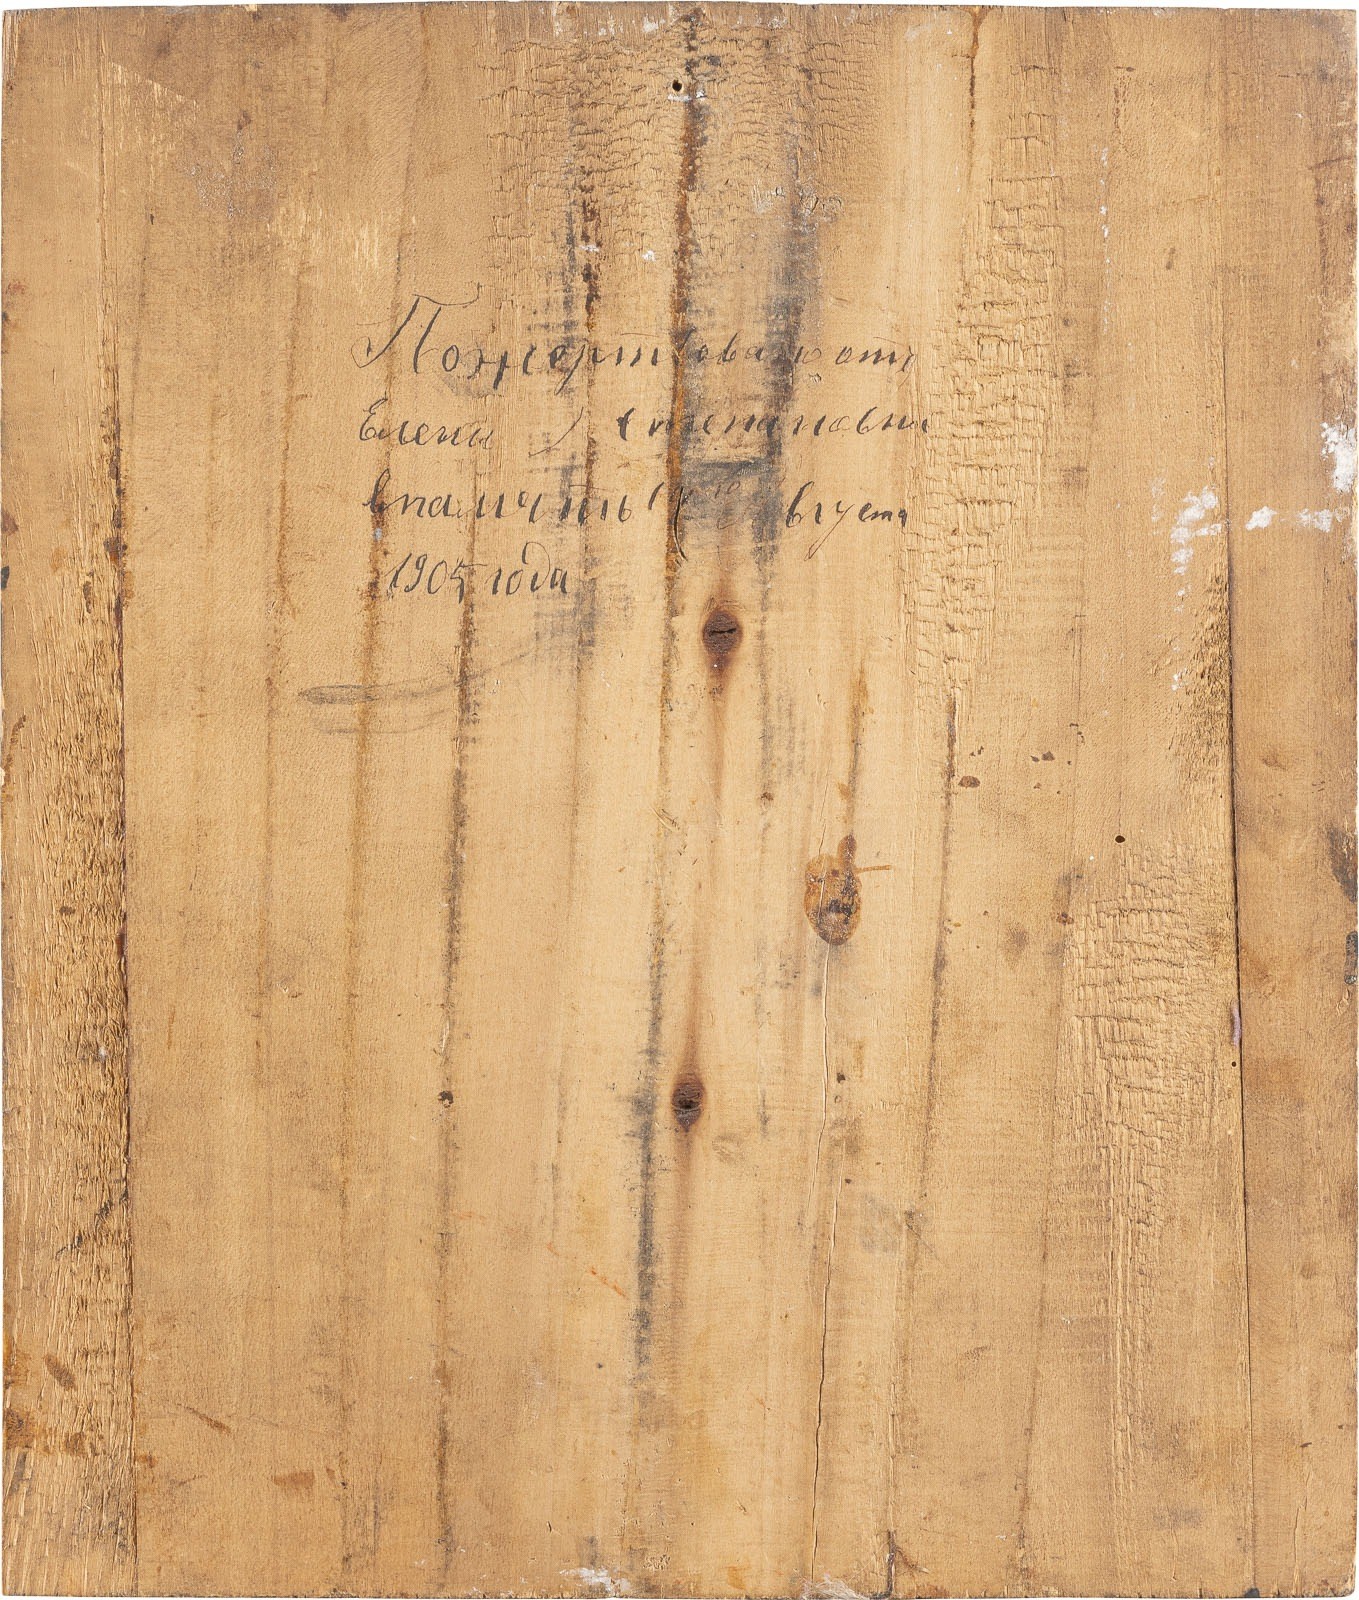 Пожертвовано отъ
Елены Степановны
в память Августа
1905 года